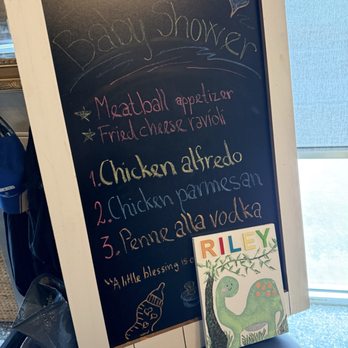 Baby Shower
Meatball appetizer
Fried cheese ravioli
1. Chicken alfredo
2. Chicken parmesan
3. Penne alla vodka
"A little blessing is
RILEY